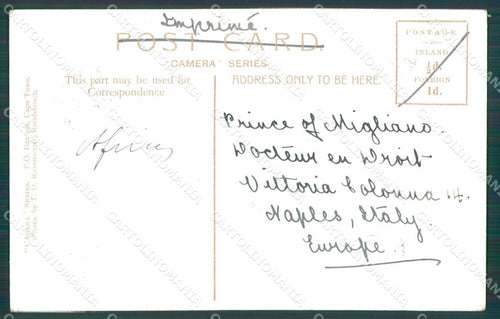 Imprimé.
POST CARD.
"CAMERA" SERIES.
This part may be used for
Correspondence
ADDRESS ONLY TO BE HERE.
POSTAGE
INLAND
½d.
FOREIGN
1d.
Prince of Migliano.
Docteur en Droit
Vittoria Colonna 14.
Naples, Italy.
Europe.
"CAMERA" SERIES. P.O. Cape Town.
Photos by T. D. Ravenscroft, Rondebosch.
CARTOLINOMANIA